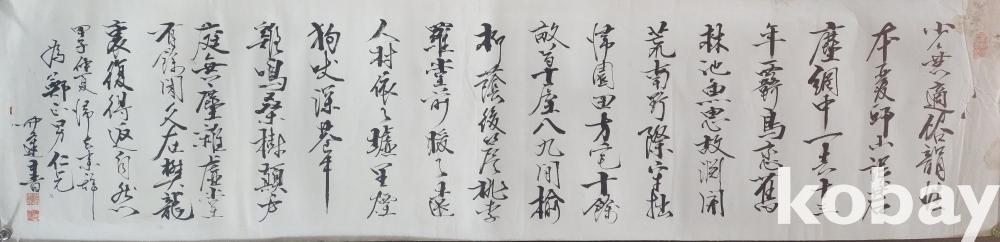 少無適俗韻性
本愛邱山誤落
塵網中一去十三
年羈鳥戀舊
林池魚思故淵開
荒南野際守拙
歸園田方宅十餘
畝草屋八九間榆
柳蔭後簷桃李
羅堂前暖々遠
人村依々墟里煙
狗吠深巷中
雞鳴桑樹顛戶
庭無塵雜虛室
有餘閑久在樊籠
裏復得返自然
甲子仲夏歸去來辭
為鄭正男仁兄
書
kobay